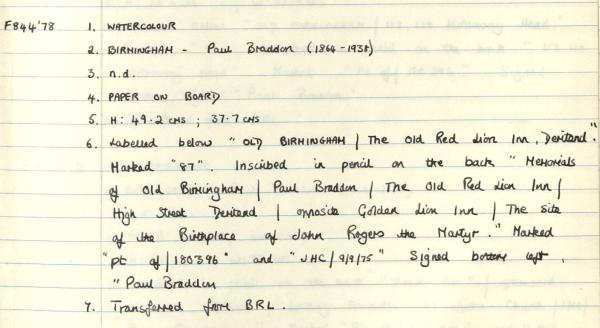 F844'78 1. WATERCOLOUR
2. BIRMINGHAM - Paul Braddon (1864-1938)
3. n.d.
4. PAPER ON BOARD
5. H: 49.2 cms ; 37.7 cms
6. Labelled below "OLD BIRMINGHAM / The Old Red Lion Inn, Deritend."
Marked "87". Inscribed in pencil on the back "Memorials
of Old Birmingham / Paul Braddon / The Old Red Lion Inn /
High Street Deritend / opposite Golden Lion Inn / The Site
of the Birthplace of John Rogers the Martyr." Marked
"pt of / 180396" and "JHC / 9/9/75" Signed bottom left,
"Paul Braddon
7. Transferred from BRL.